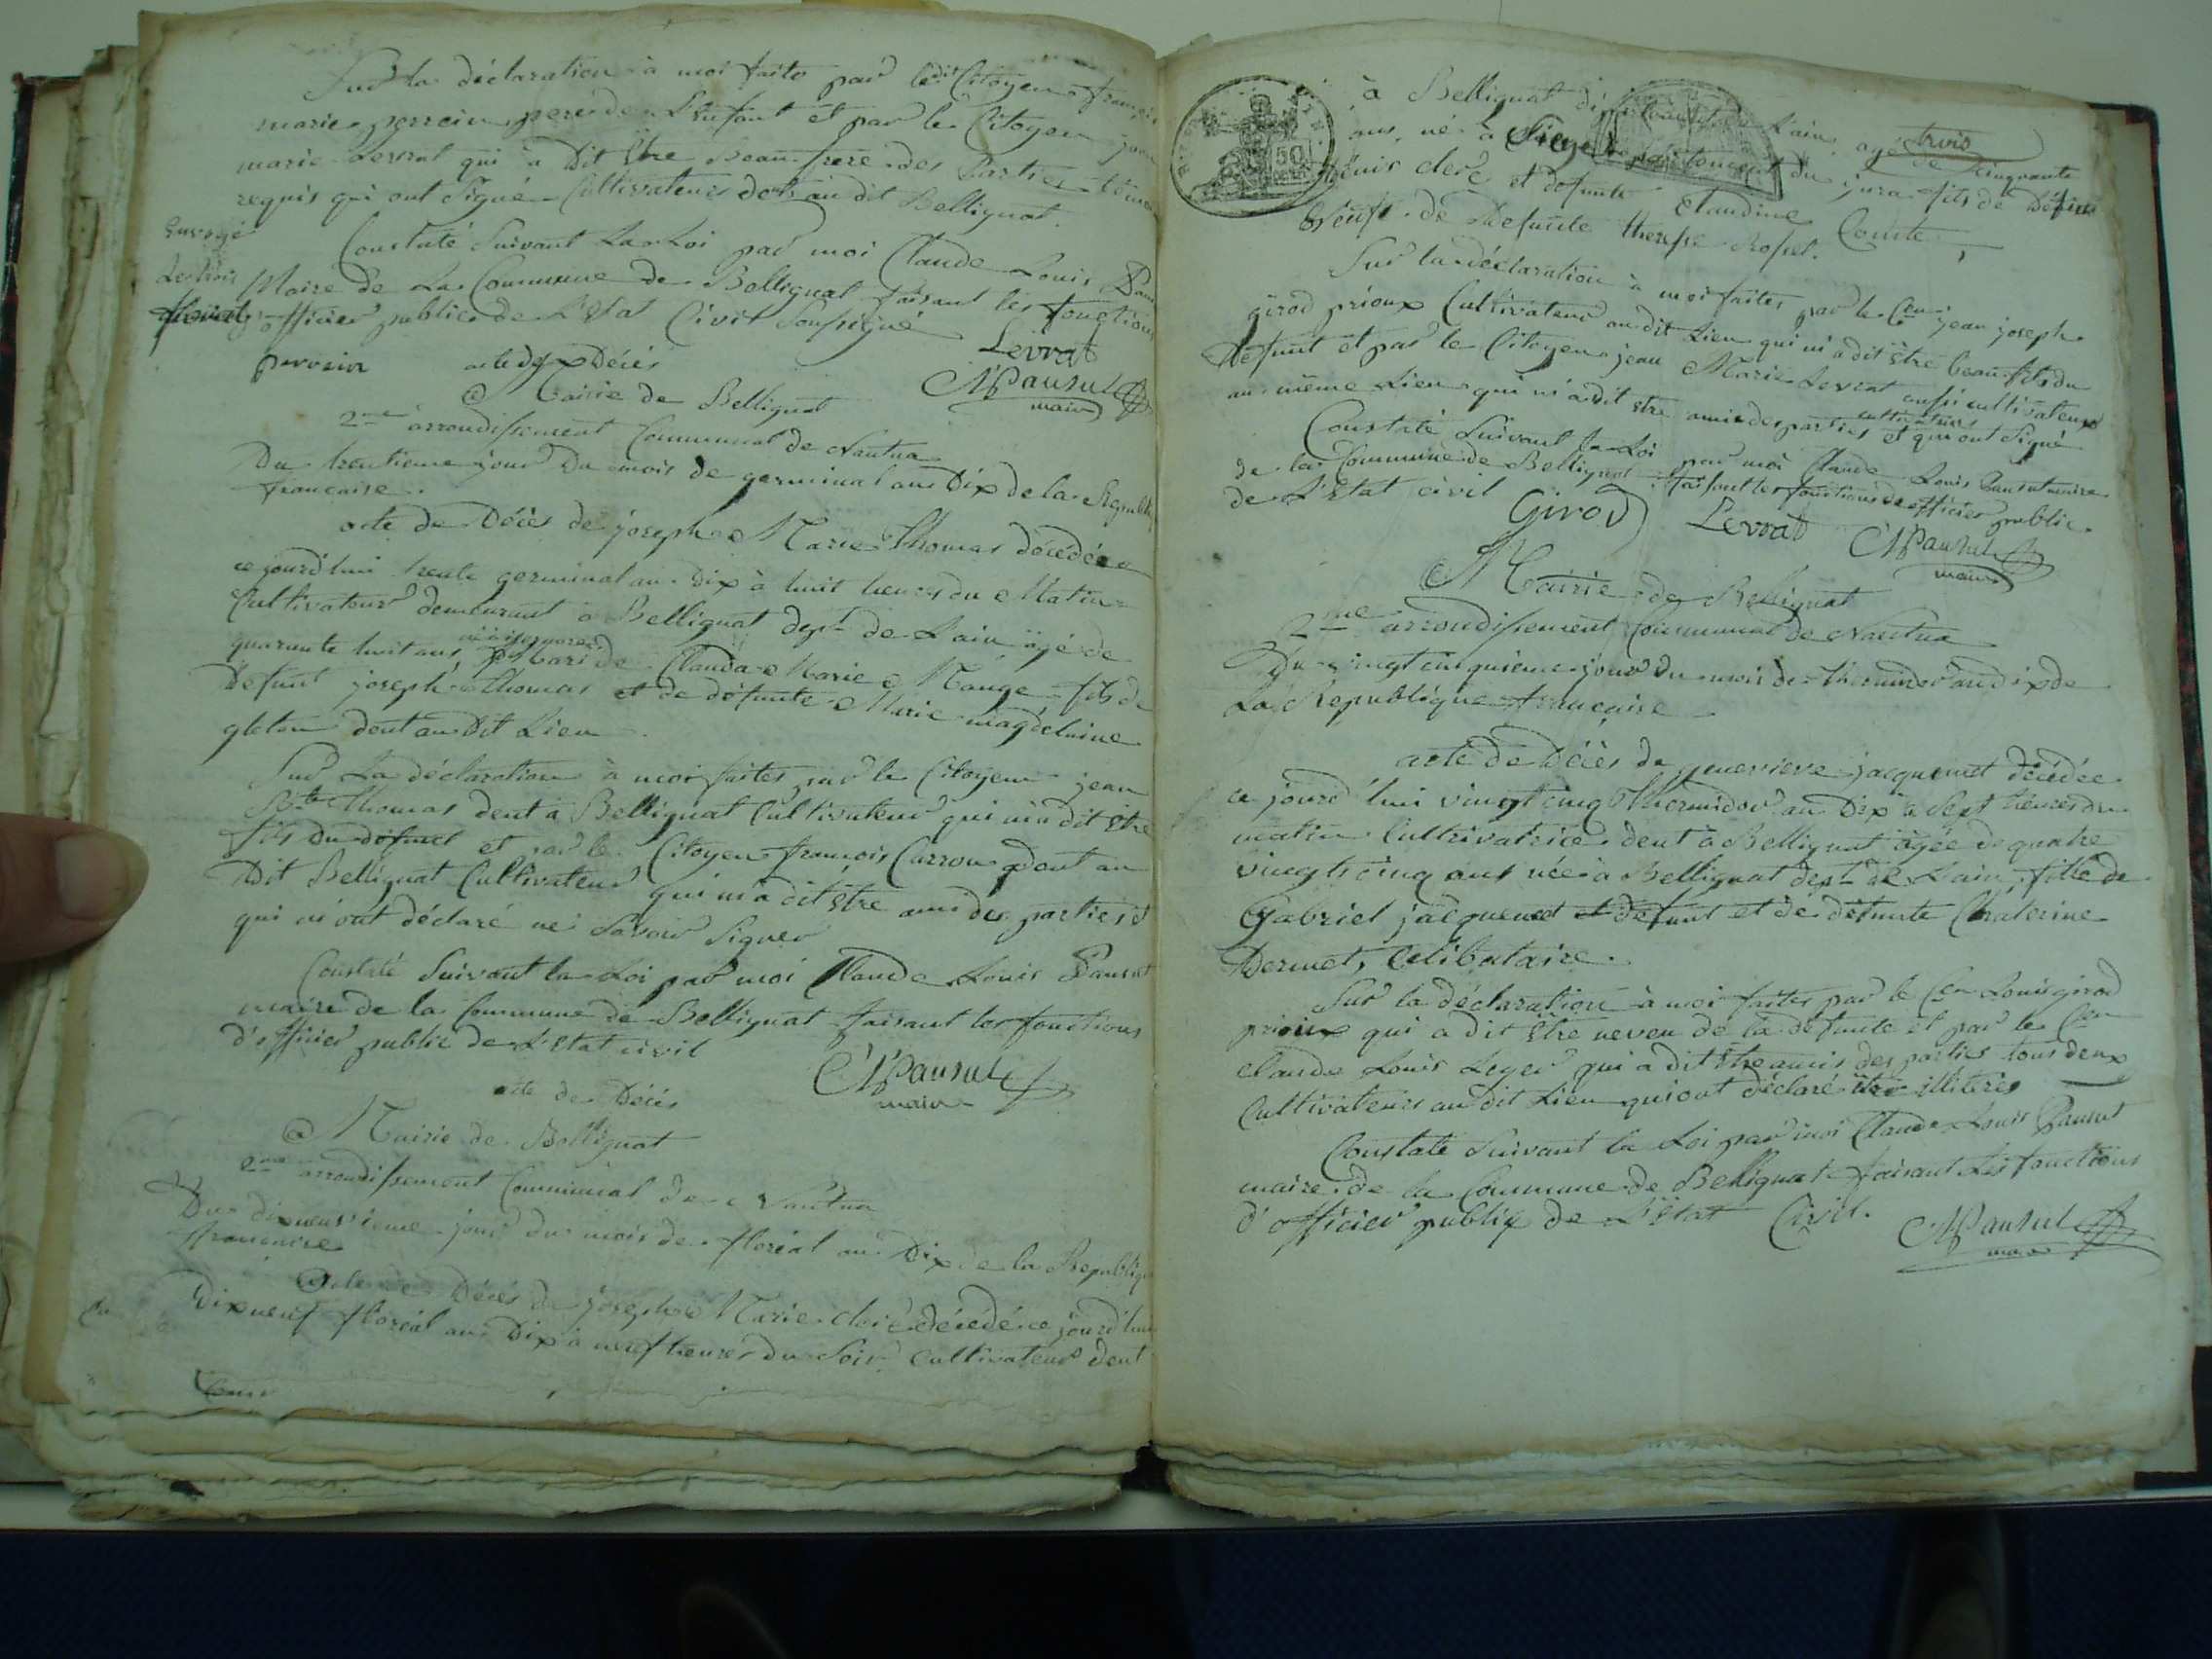 Sur la déclaration à moi faite par ledit Citoyen françois
marie perrein pere de L'enfant et par le Citoyen jean
marie Levrat qui à Dit Être Beau frere des Parties témoins
requis qui ont Signé Cultivateurs dt au dit Bellignat.
Constaté Suivant La Loi par moi Claude Louis
Envoyé
Le trois
floréal
Maire de La Commune de Bellignat faisant les fonctions
d'officier public de L'Etat Civil Soussigné
Levrat
perrein
acte de Décès
maire
Mairie de Bellignat
2me arrondissement Communal de Nantua
Du trentieme jour Du mois de germinal an Dix de la Republique
francaise.
acte de Décès de joseph Marie Thomas décédé
ce jourd'hui trente germinal an Dix à huit heures du Matin
Cultivateur demeurant à Bellignat dept de L'ain âgé de
quarante huit ans Mari de Claudа Marie Mange fils de
Defunt joseph Thomas et de défunte Marie magdelaine
gleton dent au Dit Lieu
Sur La déclaration à moi faites par le Citoyen jean
Bte Thomas dent à Bellignat Cultivateur qui m'a dit Être
fils Du défunt et par le Citoyen françois Carron dent au
Dit Bellignat Cultivateur qui m'a dit Être ami des parties et
qui m'ont déclaré ne Savoir Signer
Constaté Suivant la Loi par moi Claude Louis Pansut
maire de la Commune de Bellignat faisant les fonctions
d'officier public de L'Etat civil
Pansut
maire
acte de Décès
Mairie de Bellignat
2me arrondissement Communal de Nantua
Du dixneuvieme jour du mois de floréal an Dix de la Republique
francaise
Acte de Décès de joseph Marie clerc décédé ce jourd'hui
Dixneuf floréal an Dix à neuf heures du Soir Cultivateur dent
à Bellignat département de L'ain, agé de Cinquante
trois
ans, né à département du jura fils de Défunt
Denis clerc et défunte Claudine Comte
Veuf de Defunte therese
50
Sur la déclaration à moi faites par le Cen jean joseph
girod prioux Cultivateur au dit Lieu qui m'a dit Être beau fils du
défunt et par le Citoyen jean Marie Levrat aussi cultivateur
au même Lieu qui m'a dit être ami des parties et qui ont Signé
cultivateurs
Constaté Suivant la Loi par moi Claude Louis Pansut maire
de la Commune de Bellignat faisant les fonctions de officier public
de L'Etat civil
Girod Levrat Pansut
maire
Mairie de Bellignat
2me arrondissement Communal de Nantua
Du vingt cinquieme jour Du mois de Thermidor an dix de
La Republique francaise
acte de Décès de genevieve jacquemet décédée
ce jourd'hui vingt cinq Thermidor an Dix à Sept heures du
matin Cultivatrice dent à Bellignat âgée de quatre
vingt cinq ans née à Bellignat dept de L'ain, fille de
Gabriel jacquemet et défunt et de défunte Chaterine
Dermet, Celibataire.
Sur la déclaration à moi faites par le Cen Louis girod
prioux qui a dit Être neveu de la défunte et par le Cen
claude Louis Leger qui a dit Être amis des parties tous deux
Cultivateurs au dit Lieu qui ont déclaré être illiterés
Constaté Suivant la Loi par moi Claude Louis Pansut
maire de la Commune de Bellignat faisant Les fonctions
d'officier publix de L'Etat Civil.
Pansut
maire